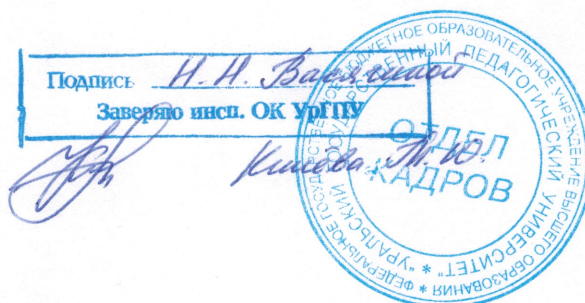 Подпись Н. Н. Васягиной
Заверяю инсп. ОК УрГПУ
Т. Ю.
ОТДЕЛ
КАДРОВ
ФЕДЕРАЛЬНОЕ ГОСУДАРСТВЕННОЕ БЮДЖЕТНОЕ ОБРАЗОВАТЕЛЬНОЕ УЧРЕЖДЕНИЕ ВЫСШЕГО ОБРАЗОВАНИЯ *
"УРАЛЬСКИЙ ГОСУДАРСТВЕННЫЙ ПЕДАГОГИЧЕСКИЙ УНИВЕРСИТЕТ" *